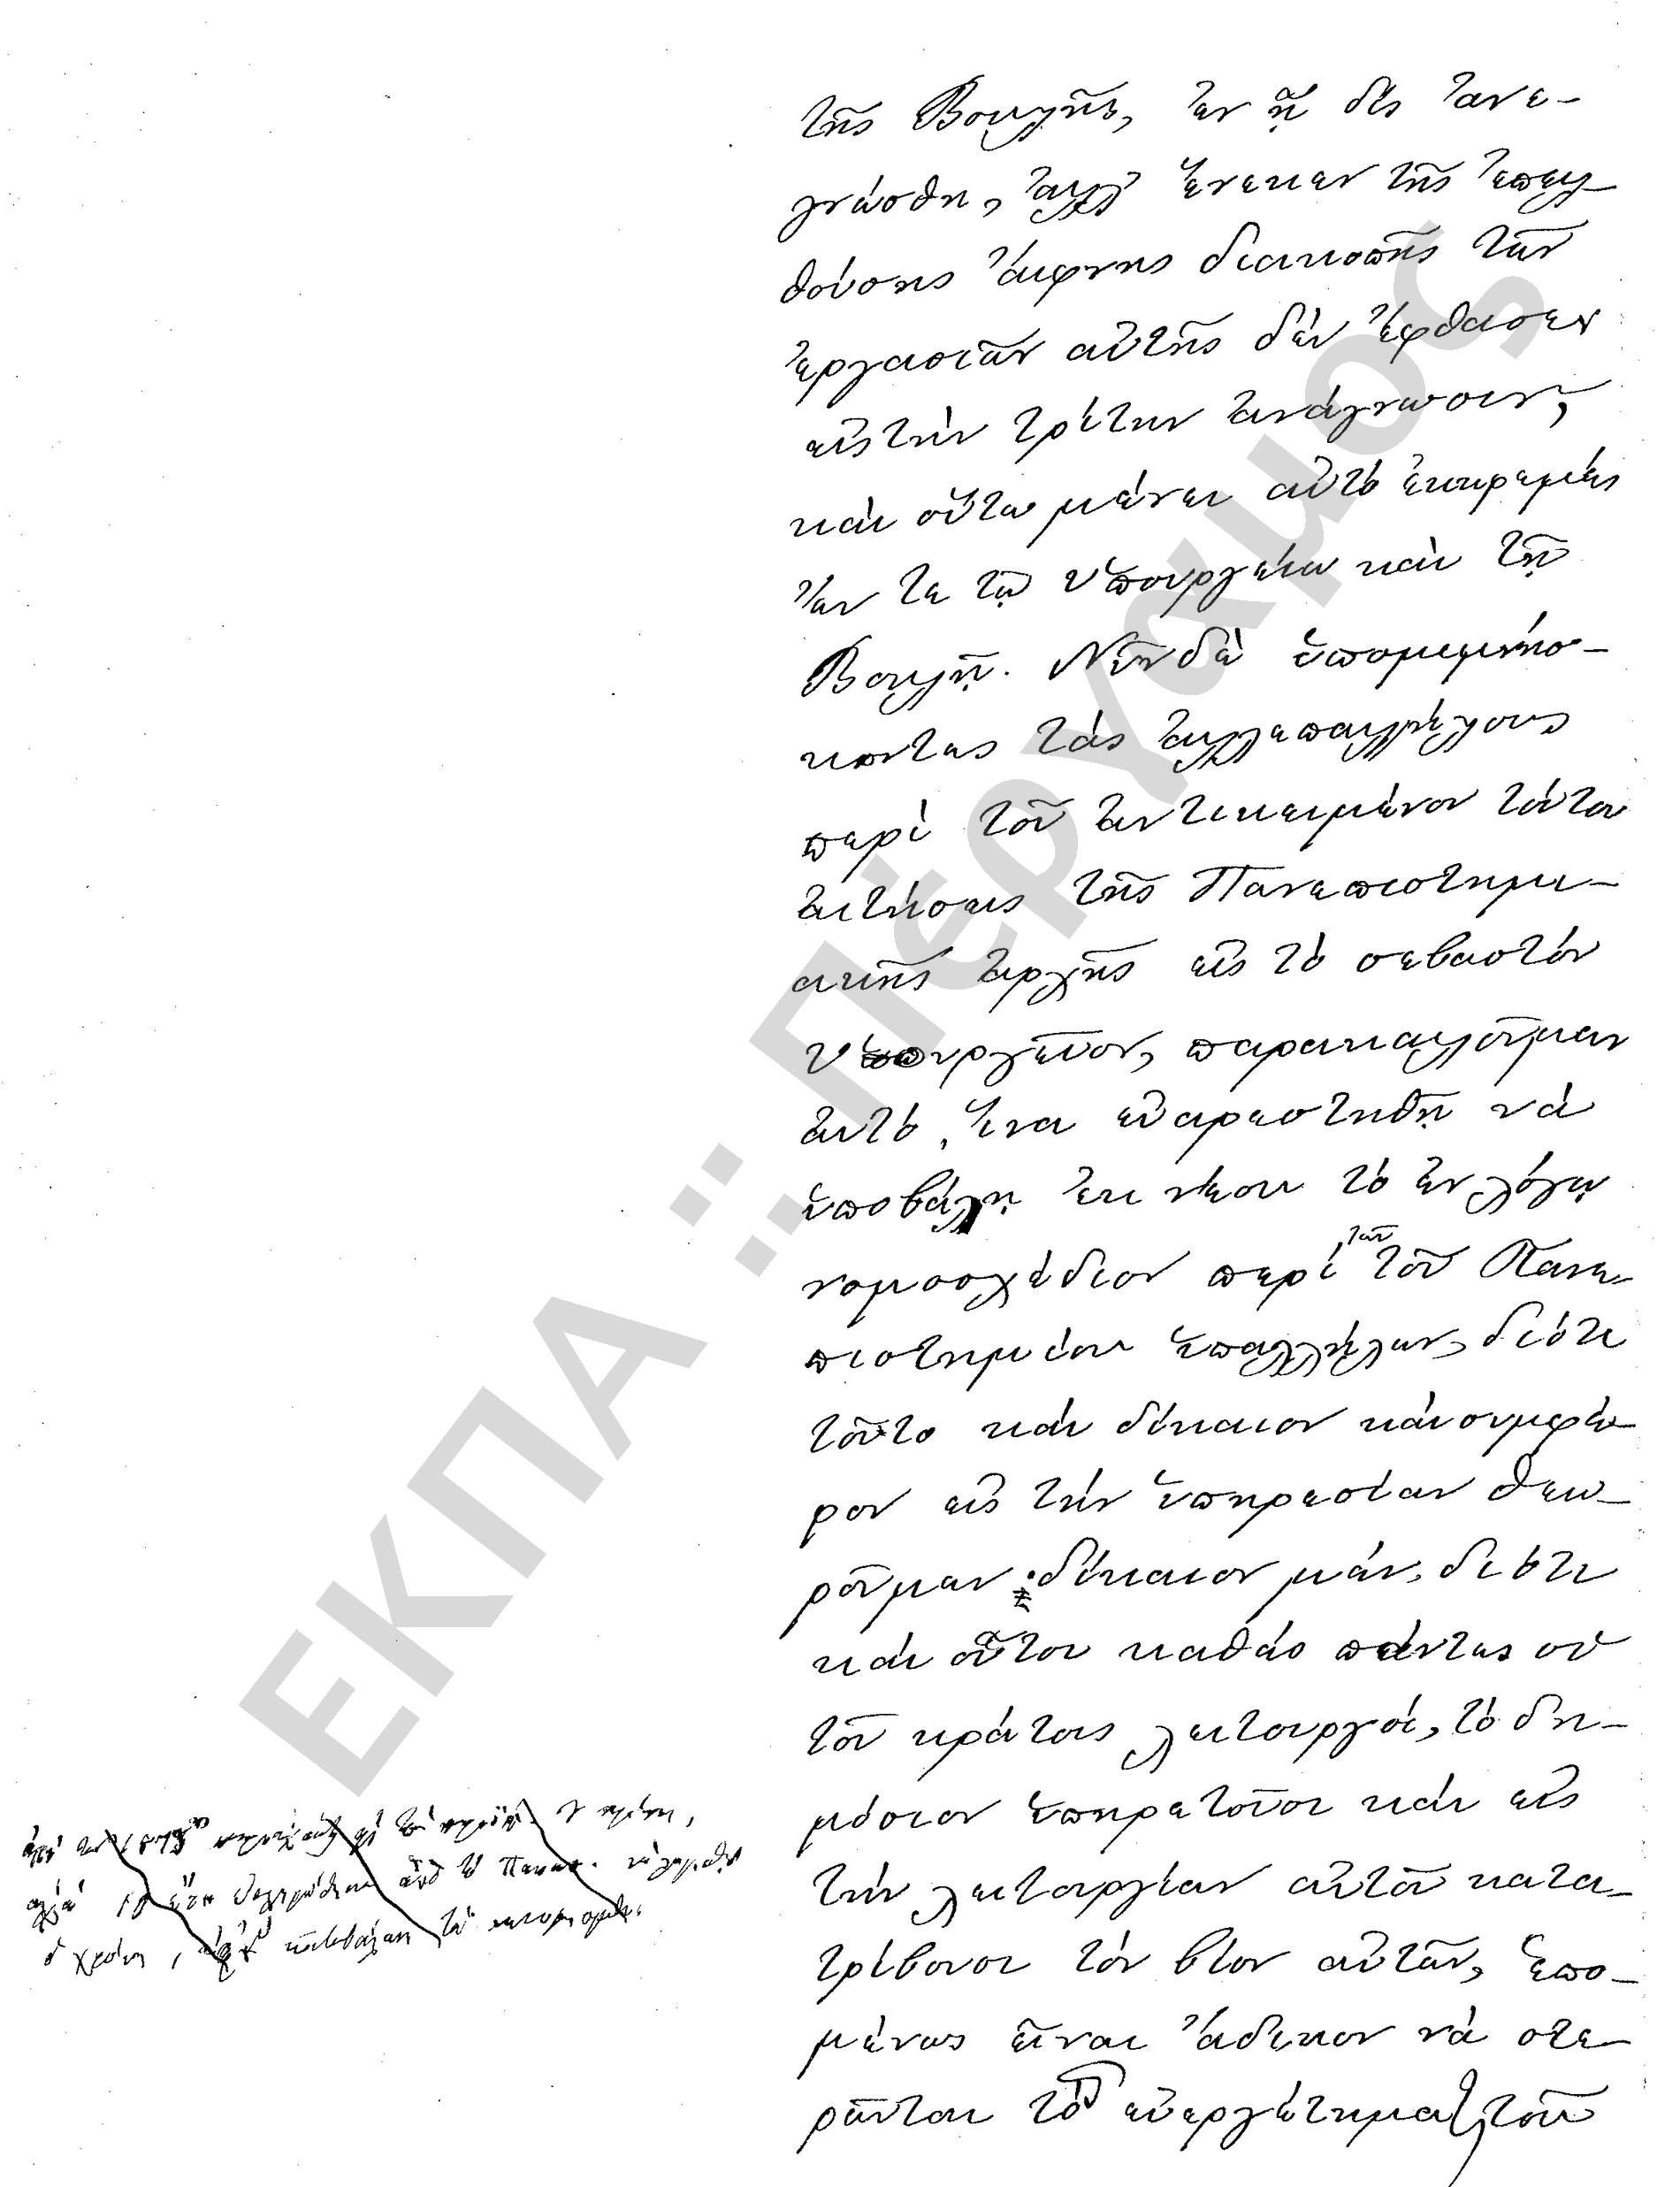 τῆς Βουλῆς, ἐν ᾗ δὶς ἀνε-
γνώσθη, ἀλλ' ἕνεκεν τῆς ἐπελ-
θούσης αἴφνης διακοπῆς τῶν
ἐργασιῶν αὐτῆς δὲν ἔφθασεν
εἰς τὴν τρίτην ἀνάγνωσιν,
καὶ οὕτω μένει αὐτὸ ἐκκρεμὲς
ἔν τε τῷ Ὑπουργείῳ καὶ τῇ
Βουλῇ. Νῦν δὲ ὑπομιμνήσ-
κοντες τὰς ἀλλεπαλλήλους
περὶ τοῦ ἀντικειμένου τούτου
αἰτήσεις τῆς Πανεπιστημι-
ακῆς ἀρχῆς εἰς τὸ σεβαστὸν
Ὑπουργεῖον, παρακαλοῦμεν
αὐτό, ἵνα εὐαρεστηθῇ νὰ
ὑποβάλῃ ἐκ νέου τὸ ἐν λόγῳ
νομοσχέδιον περὶ τῶν τοῦ Πανε-
πιστημίου ὑπαλλήλων, διότι
τοῦτο καὶ δίκαιον καὶ συμφέ-
ρον εἰς τὴν ὑπηρεσίαν θεω-
ροῦμεν· δίκαιον μέν, διότι
καὶ οὗτοι καθὼς πάντες οἱ
τοῦ κράτους λειτουργοί, τὸ δη-
μόσιον ὑπηρετοῦσι καὶ εἰς
τὴν λειτουργίαν αὐτοῦ κατα-
τρίβουσι τὸν βίον αὐτῶν, ἑπο-
μένως εἶναι ἄδικον νὰ στε-
ρῶνται τοῦ εὐεργετήματος τοῦ